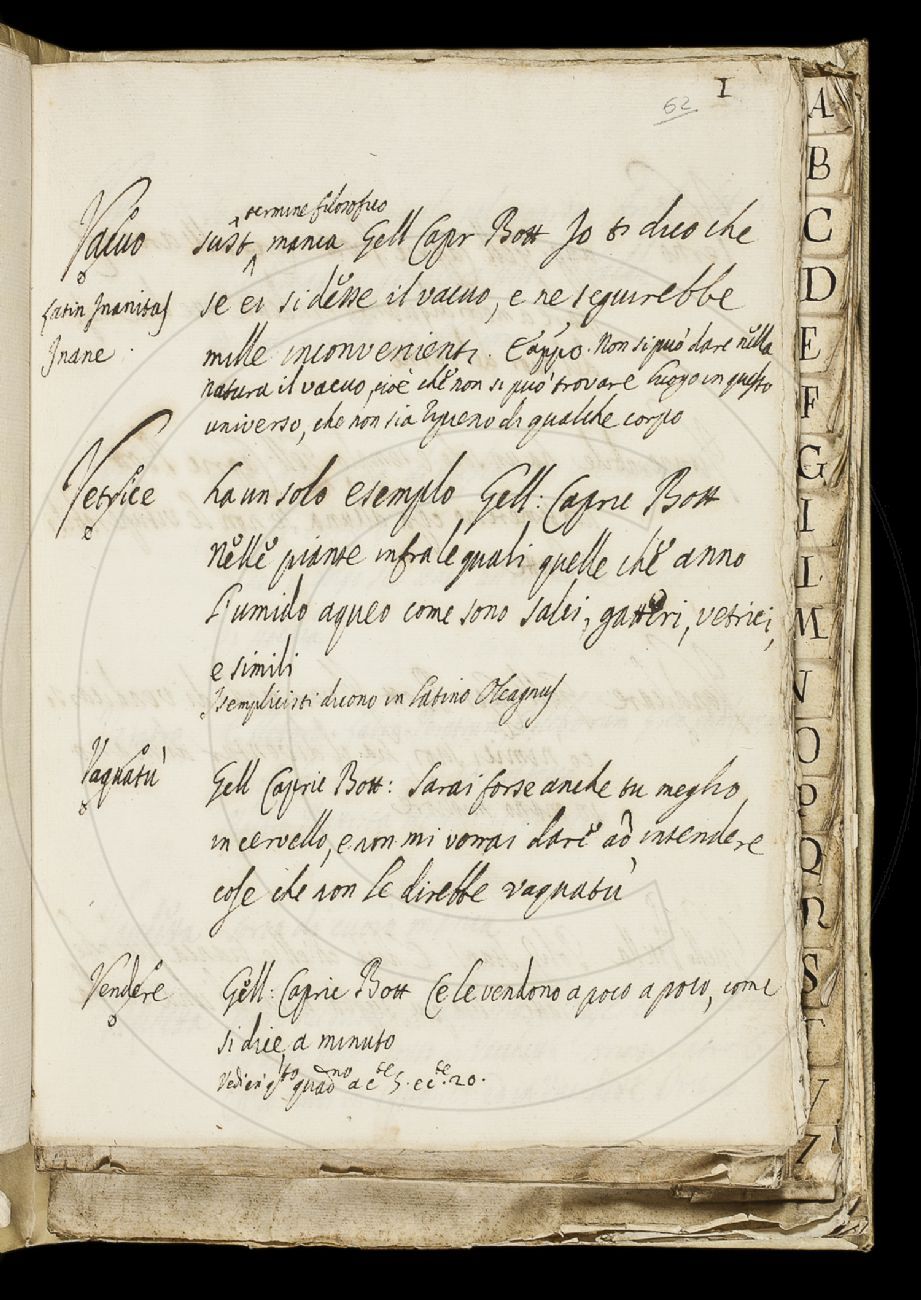 62 I
Vacuo sust. termine filosofico manca Gell Capr Bott Jo ti dico che
Latin Jnanitas se ei si desse il vacuo, e ne seguirebbe
Jnane. mille inconvenienti. E appo. Non si può dare nella
natura il vacuo, cioè che non si può trovare luogo in questo
universo, che non sia ripieno di qualche corpo
Vetrice ha un solo esemplo Gell: Capric Bott
Nelle piante infra le quali quelle che anno
l'umido aqueo come sono salci, gatteri, vetrici,
e simili
I semplicisti dicono in latino Oleagnus
Vagnatù Gell Capric Bott: Sarai forse anche tu meglio
in cervello, e non mi vorrai dare ad intendere
cose che non le direbbe vagnatù
Vendere Gell: Capric Bott E le vendono a poco a poco, come
si dice, a minuto
Vedi in qsto quadno a cte 5. e cte. 20.
A
B
C
D
E
F
G
I
L
M
N
O
P
Q
R
S
T
V
Z